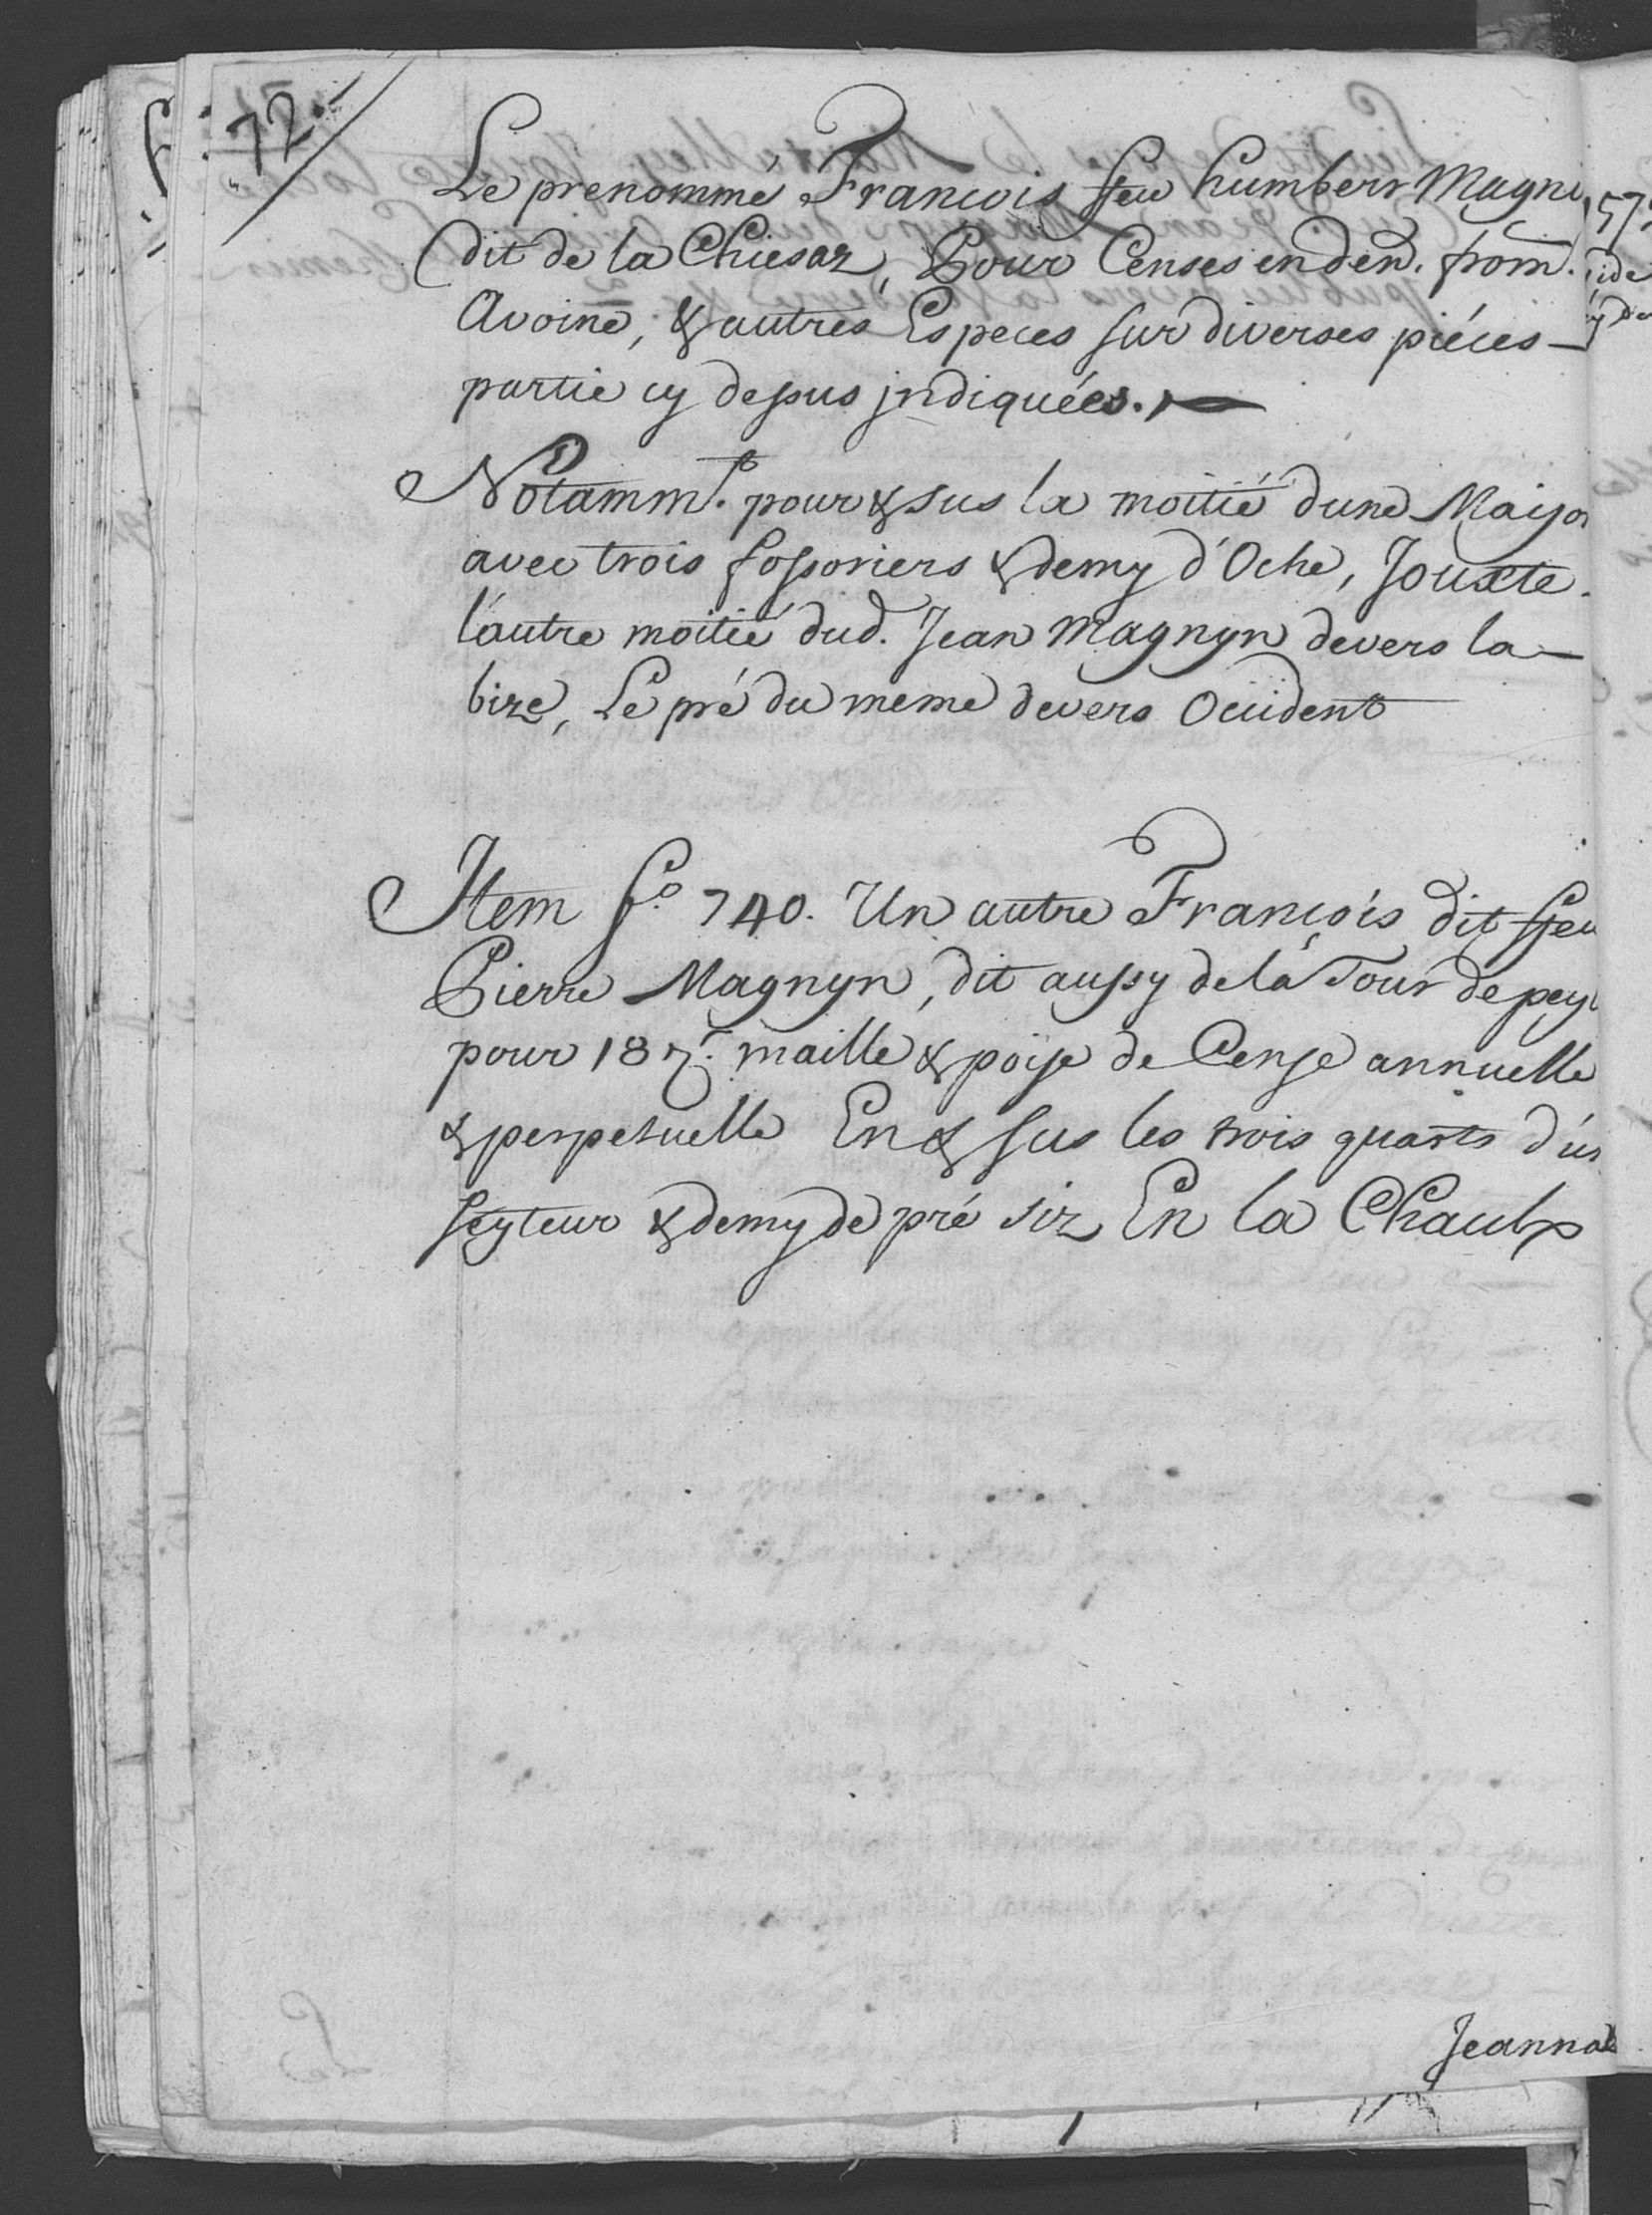 72.
Le prenommé Francois feu humbert Magni
dit de la Chiesaz, Pour Censes en den. from.
Avoine, & autres Especes sur diverses piéces
partie cy dessus jndiquées.
Notamm.t pour & sus la moitié dune Maiso
avec trois fossoriers & demy d'Oche, Jouxte.
l'autre moitié dud. Jean Magnyn devers la
bize, Le pré du meme devers Occident
Item f.o 740. Un autre François dit feu
Pierre Magnyn, dit aussy de la Tour de peyl
pour 18 maille & poise de Cense annuelle
& perpetuelle En & sus les trois quarts d'un
seyteur & demy de pré siz En la Chaulx
Jeanna